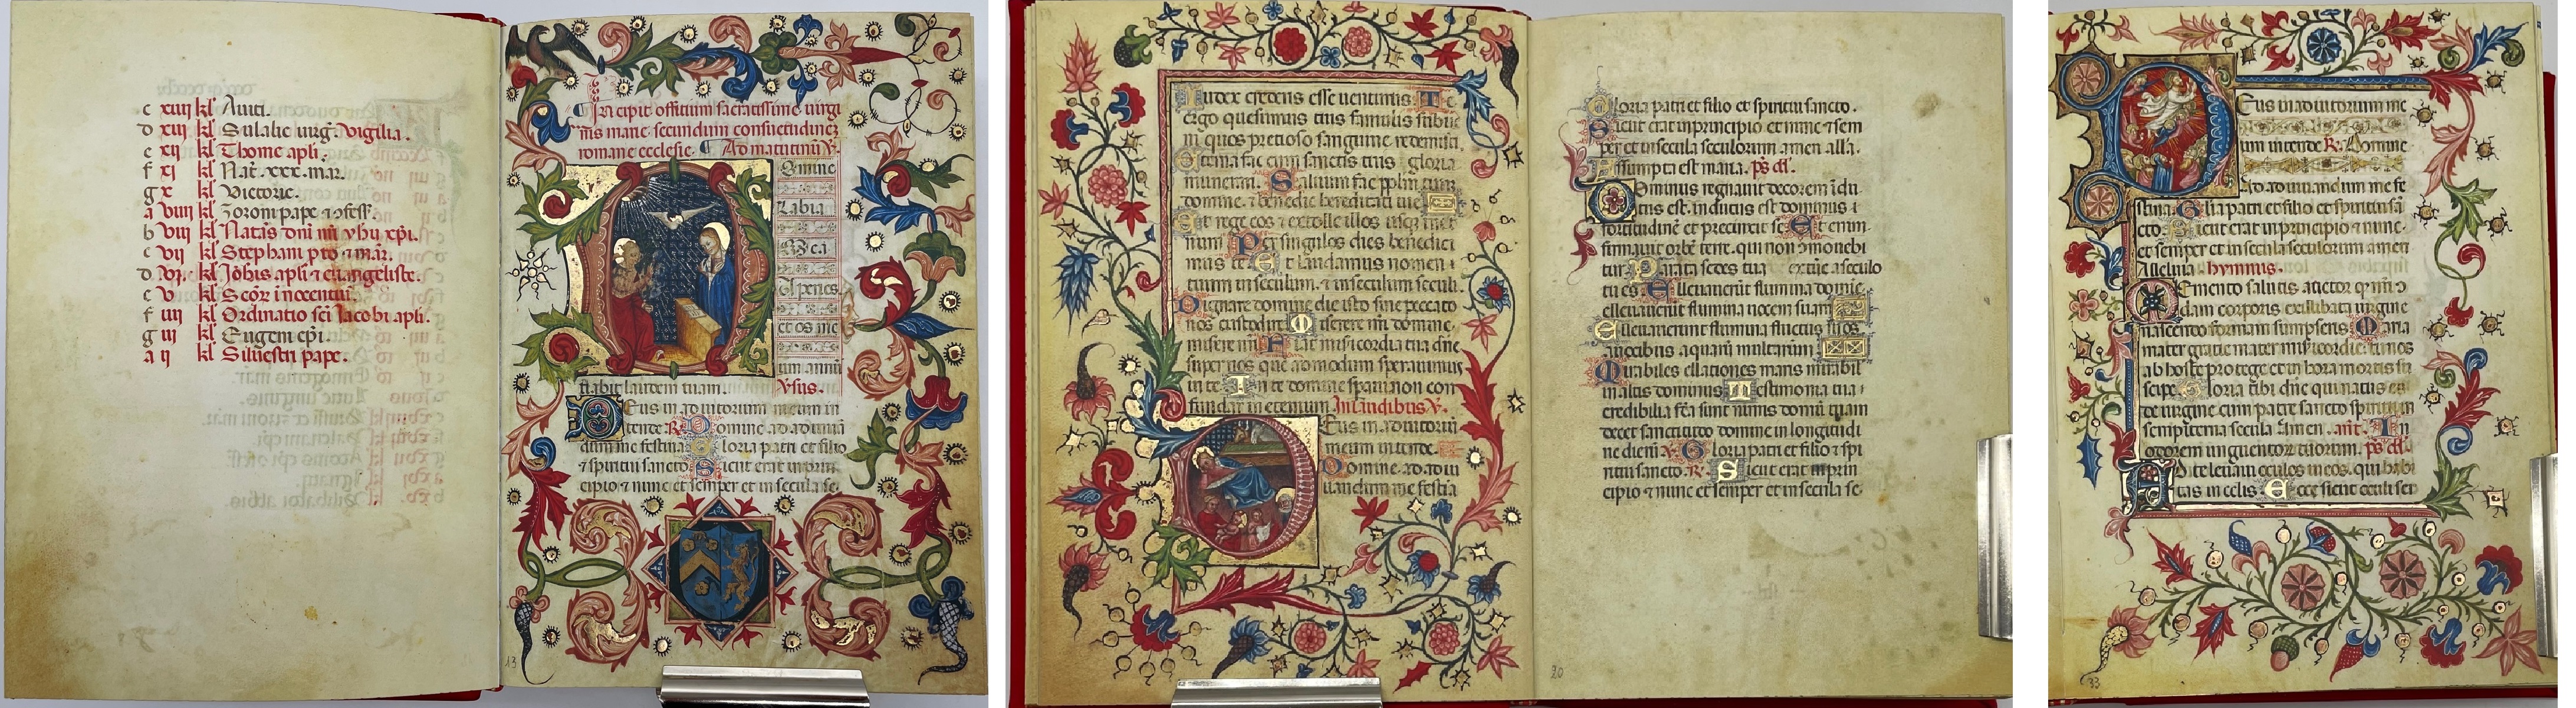 c xiii kł Auiti.
d xiij kł Eulalie uirg̃. Vigilia.
e xij kł Thome apli.
f xi kł Nat̃. xxx. mar.
g x kł Victorie.
a viiij kł Zoroni pape ⁊ ɔfess.
b viij kł Natał dnĩ nr̃i yhu xp̃i.
c vij kł Stephani pto ⁊ mar̃.
d vj. kł Joħis apli ⁊ euangeliste.
e v kł Scõr̃ innocentiũ.
f iiij kł Ordinatio sc̃i Jacobi apli.
g iij kł Eugenii ep̃i.
a ij kł Siluestri pape.
Incipit offitium sacratissime uirgi
nis marie secundum consuetudinẽ
romane ecclesie. Ad matutinũ ℣.
Domine
Labia
Mea
Aperies
et os me
um annũ
tiabit laudem tuam. ℣sus.
Deus in adiutorium meum in
tende ℟ Domine ad adiuuã
dum me festina Gloria patri et filio
⁊ spiritui sancto Sicut erat in prin
cipio ⁊ nunc et semper et in secula se
13
Iudex crederis esse uenturus Te
ergo quesumus tuis famulis subue
ni quos pretioso sanguine redemisti.
Eterna fac cum sanctis tuis gloria
munerari. Saluum fac pplm tuum
domine. ⁊ benedic hereditati tue
Et rege eos ⁊ extolle illos usq; in eter
num Per singulos dies benedici
mus te Et laudamus nomen
tuum in seculum. ⁊ in seculum seculi.
Dignare domine die isto sine peccato
nos custodire Miserere nr̃i domine.
miserere nr̃i Fiat misericordia tua dñe
super nos que ad modum sperauimus
in te In te domine speraui non con
fundar in eternum In laudibus ℣.
Deus in adiutoriũ
meum intende.
Domine. ad adiu
uandum me festia
Gloria patri et filio et spiritui sancto.
Sicut erat in principio et nunc ⁊ sem
per et in secula seculorum amen alla.
Assumpta est maria. ps̃ dd.
Dominus regnauit decorem ĩdu
tus est. indutus est dominus
fortitudinẽ et precinxit se Et enim
firmauit orbẽ terre. qui non ɔmouebi
tur Parata sedes tua ex tũc a seculo
tu es Eleuauerũt flumina domine
eleuauerũt flumina uocem suam
Eleuauerunt flumina fluctus suos
a uocibus aquarũ multarum
Mirabiles ellationes maris mirabil
in altis dominus Testimonia tua
credibilia fc̃a sunt nimis domũ tuam
decet sanctitudo domine in longitudi
ne dierũ ℣ Gloria patri et filio ⁊ spi
ritui sancto. ℟. Sicut erat in prin
cipio ⁊ nunc et semper et in secula se-
20
Deus in adiutorium me
um intende ℟. Domine
Ad adiuuandum me fe
stina. Gl̃ia patri et filio et spiritui sã
cto. Sicut erat in principio et nunc
et semper et in secula seculorum amen
Alleluia. hymnus.
Memento salutis auctor q̃ nr̃i q̃
dam corporis ex illibata uirgine
nascendo formam sumpseris Maria
mater gratie mater misericordie. tu nos
ab hoste protege et in hora mortis su
scipe Gloria tibi dñe qui natus es
de uirgine cum patre sancto spiritu in
sempiterna secula Amen. ant̃. In
odorem unguentor̃ tuorum. ps̃ dd.
Ad te leuaui oculos meos. qui habi
tas in celis Ecce sicut oculi ser
33